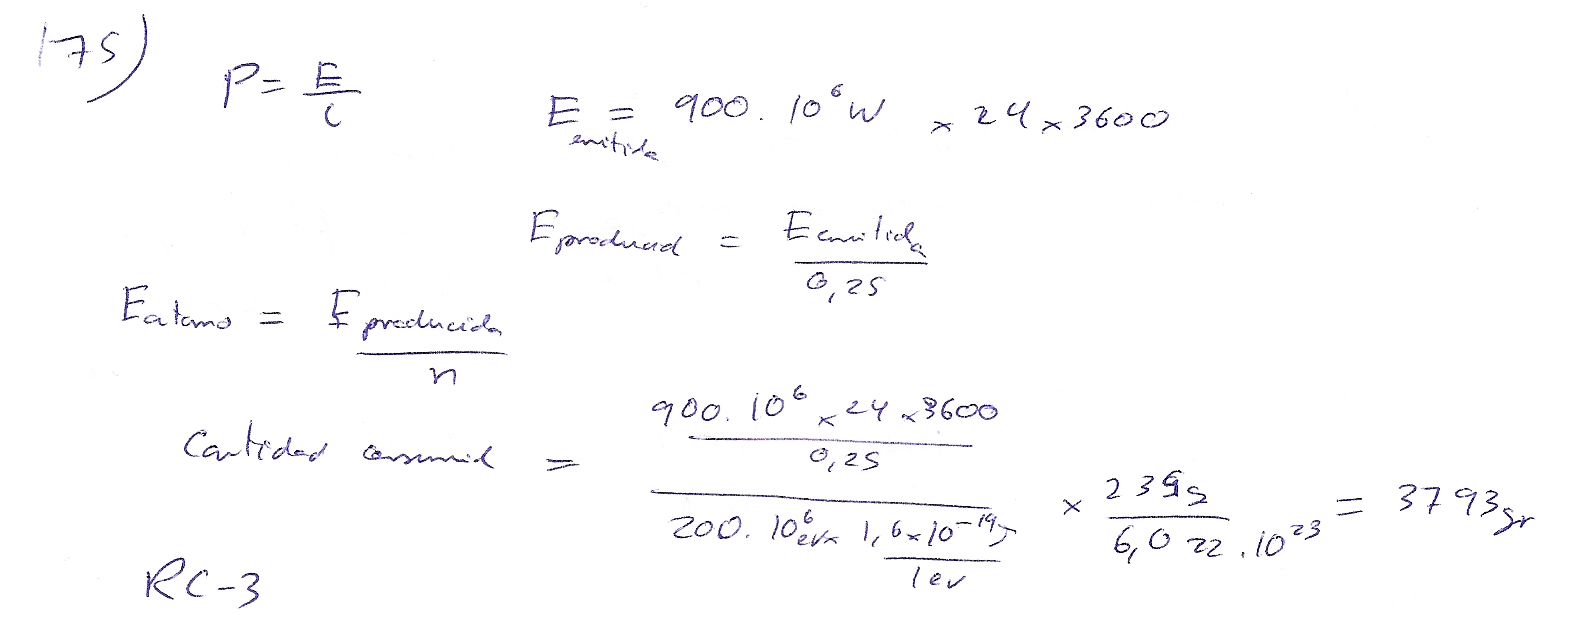 175)
P = E / t
E emitida = 900. 10^6 W × 24 × 3600
E producid = E emitida / 0,25
E atomo = E producida / n
Cantidad consumid = (900. 10^6 × 24 × 3600 / 0,25) / (200. 10^6 ev × 1,6×10^-19 J / 1 ev) × 235g / 6,022 . 10^23 = 3793 gr
RC-3